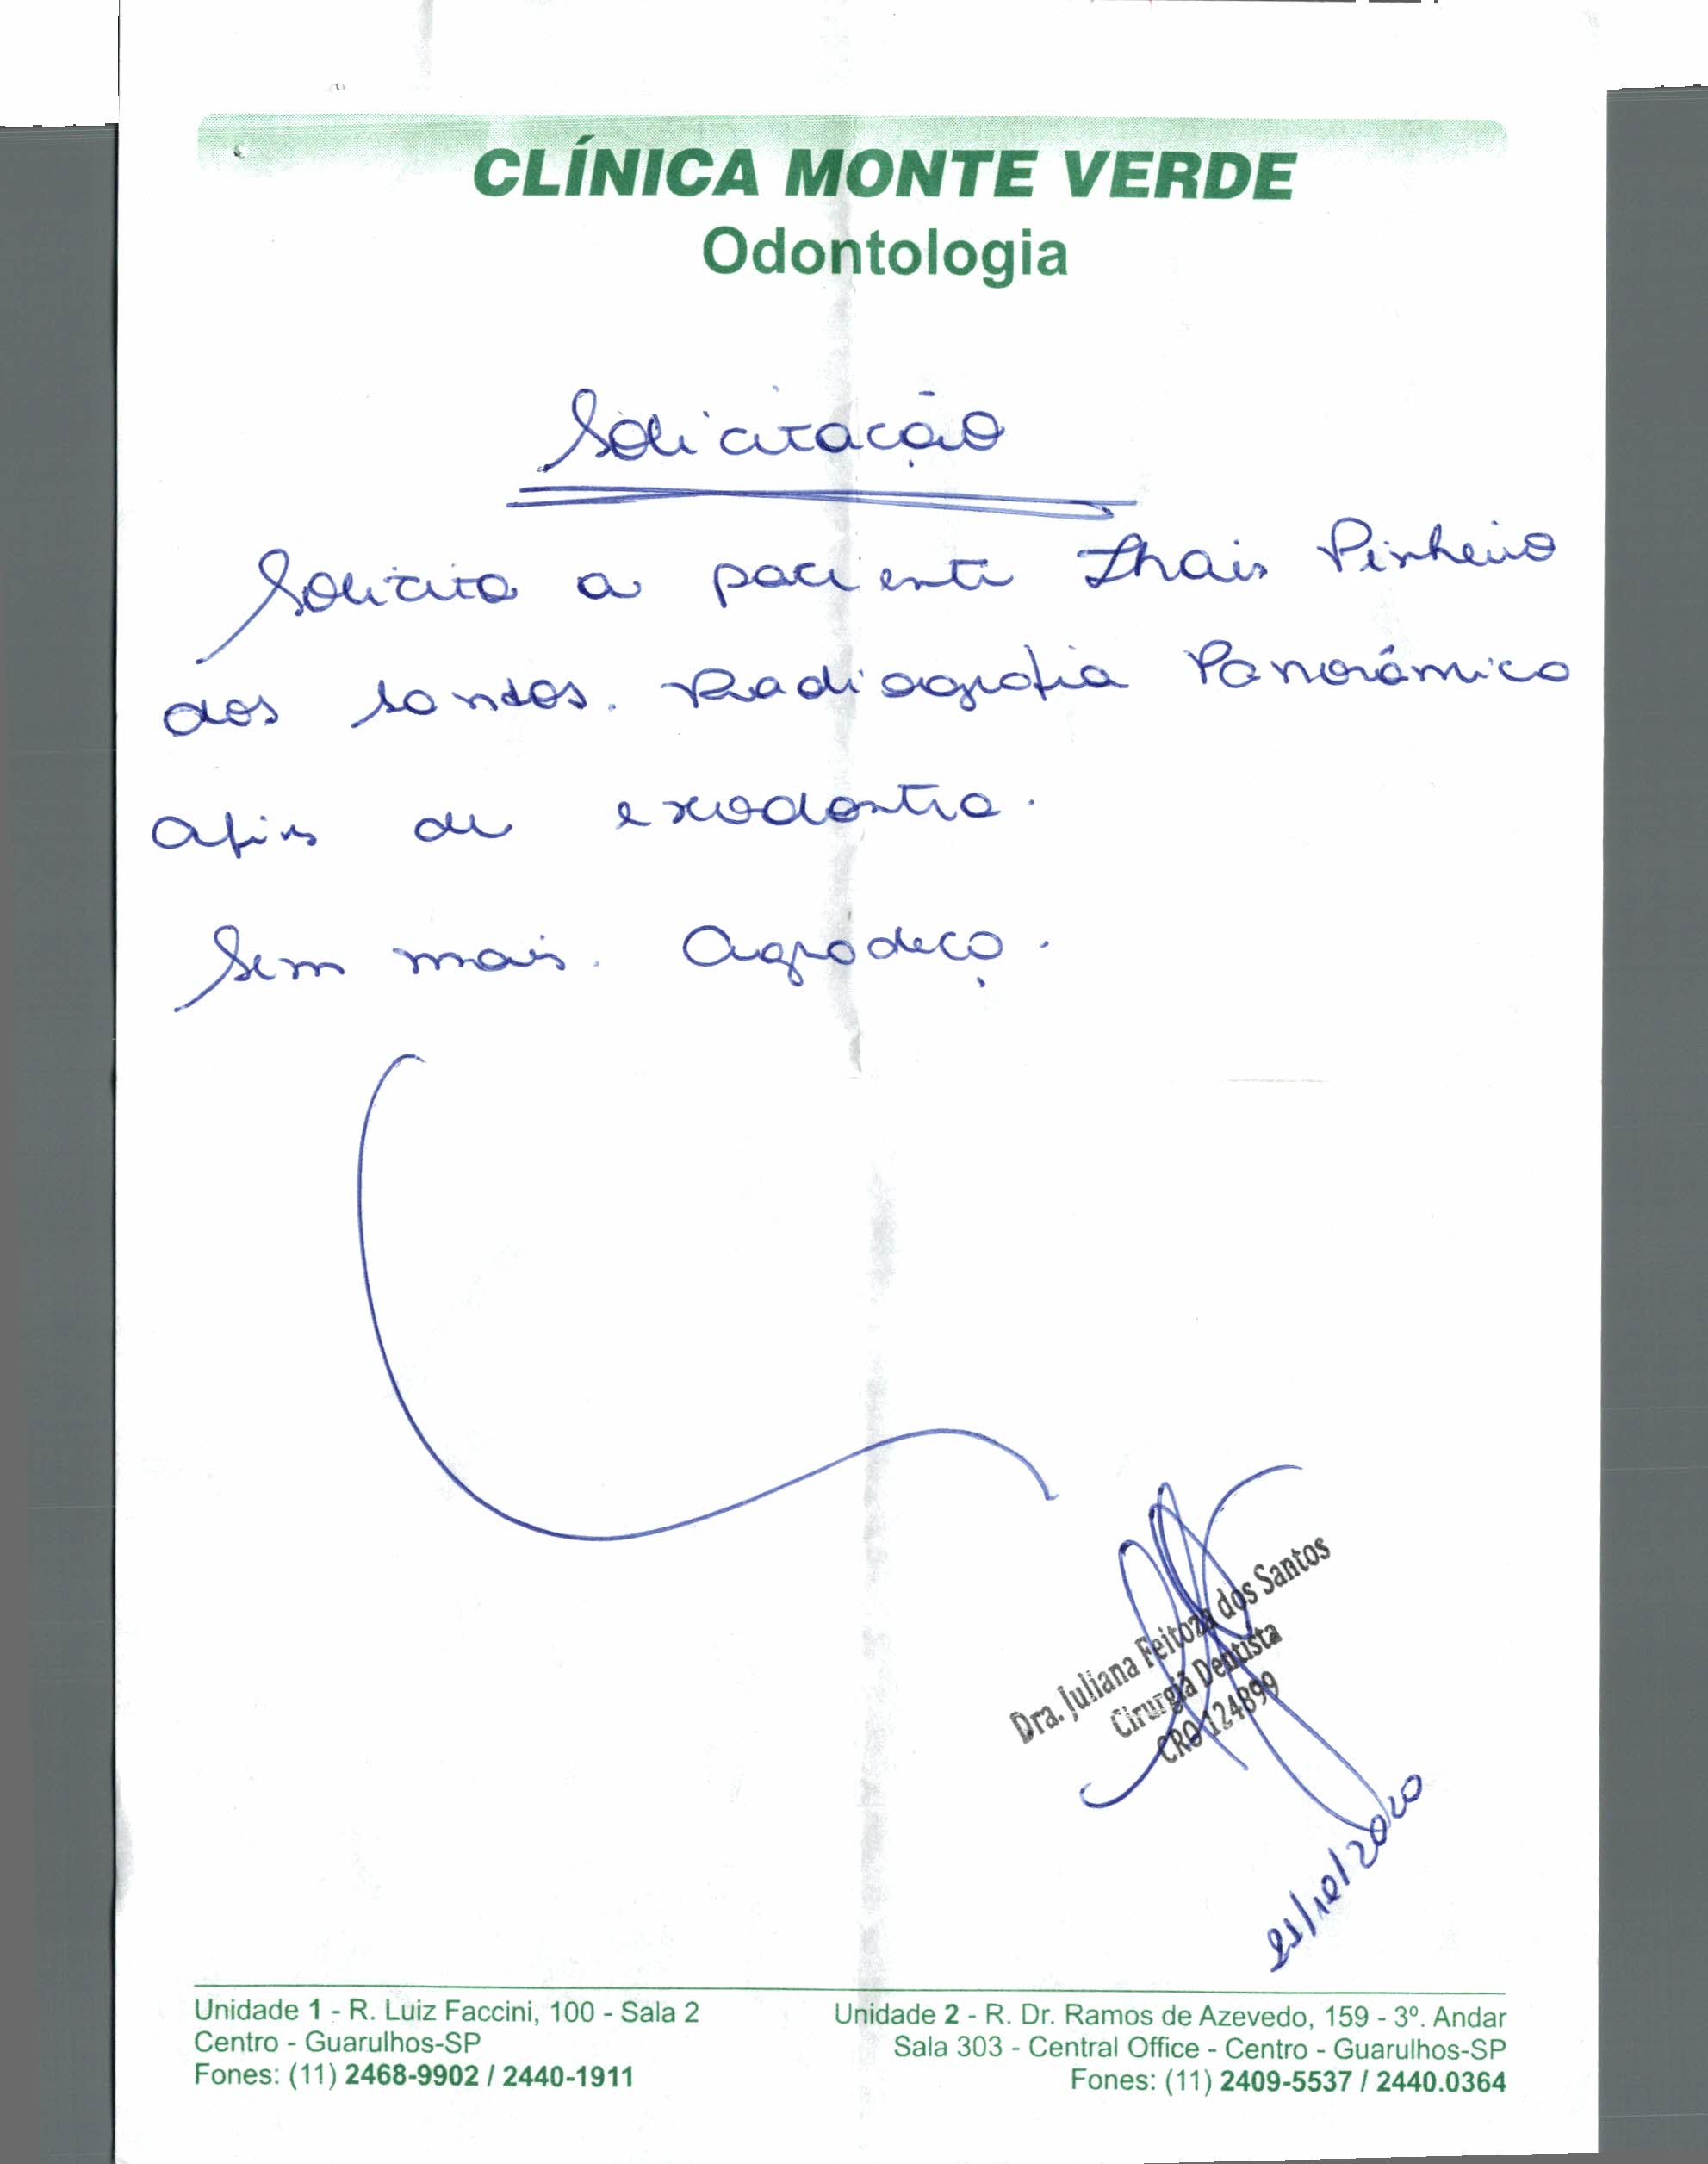 CLÍNICA MONTE VERDE
Odontologia
Solicitação
Solicito a paciente Thais Pinheiro
dos Santos. Radiografia Panorâmica
afins de exodontia.
Sem mais. Agradeço.
Dra. Juliana Feitoza dos Santos
Cirurgiã Dentista
CRO 124899
21/10/2020
Unidade 1 - R. Luiz Faccini, 100 - Sala 2
Centro - Guarulhos-SP
Fones: (11) 2468-9902 / 2440-1911
Unidade 2 - R. Dr. Ramos de Azevedo, 159 - 3º. Andar
Sala 303 - Central Office - Centro - Guarulhos-SP
Fones: (11) 2409-5537 / 2440.0364